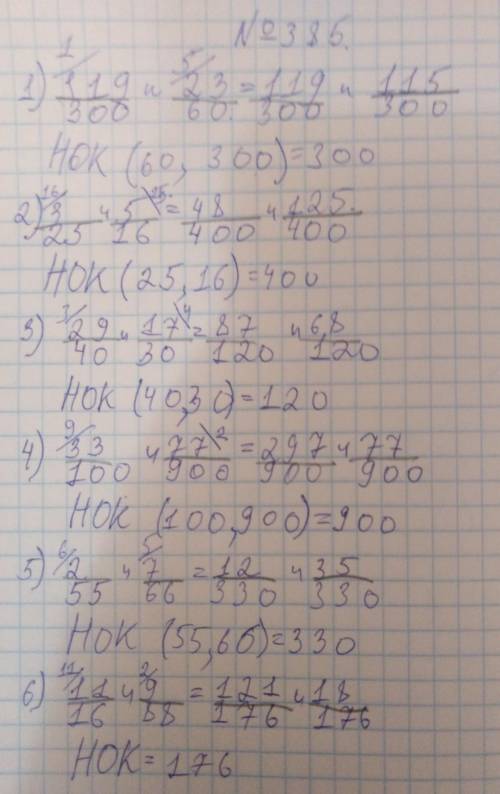 №385.
1) 1/ 119/300 и 5/ 23/60 = 119/300 и 115/300
НОК (60, 300)=300
2) 16/ 3/25 и 5/16 \25 = 48/400 и 125/400.
НОК (25,16)=400
3) 3/ 29/40 и 17/30 \4 = 87/120 и 68/120
НОК (40,30)=120
4) 9/ 33/100 и 77/900 = 297/900 и 77/900
НОК (100,900)=900
5) 6/ 2/55 и 5/ 7/66 = 12/330 и 35/330
НОК (55,66)=330
6) 11/ 11/16 и 2/ 9/88 = 121/176 и 18/176
НОК=176